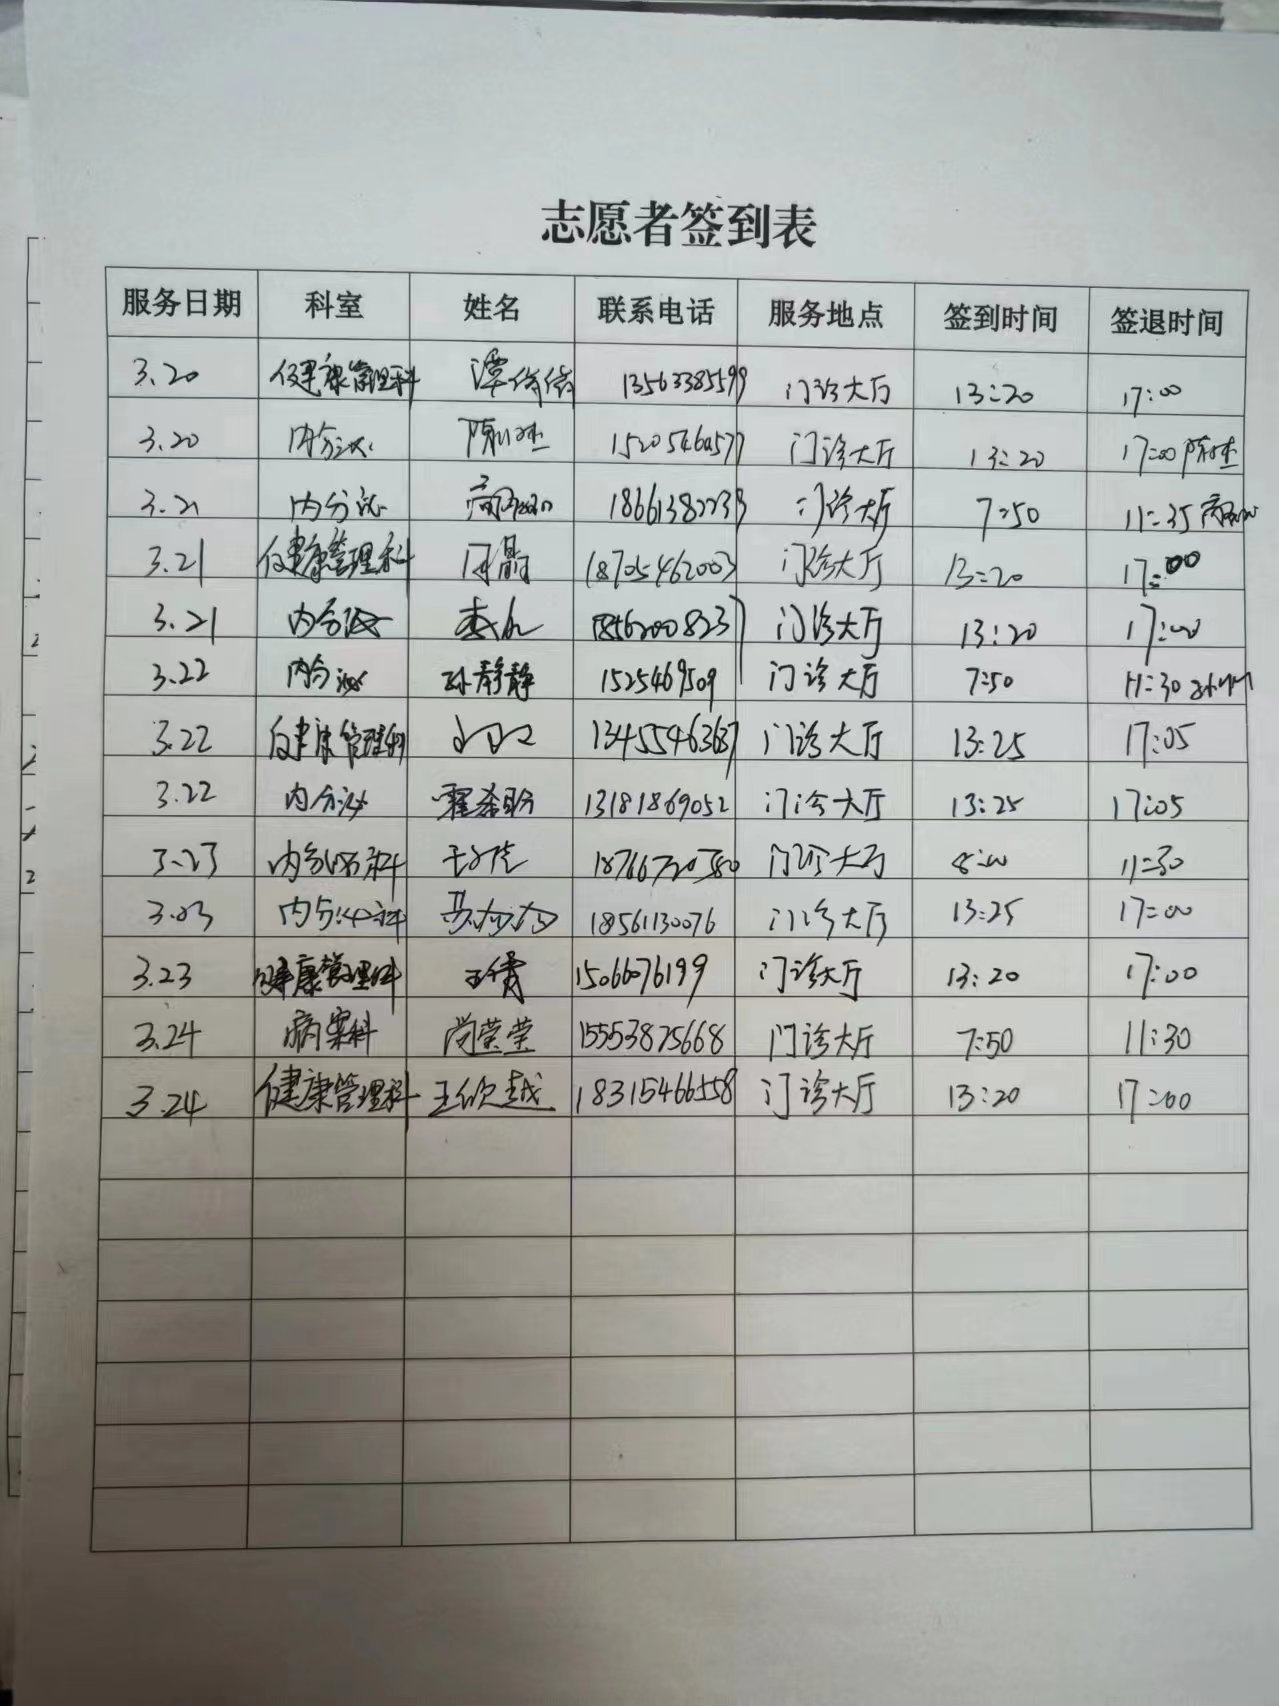 志愿者签到表
服务日期 科室 姓名 联系电话 服务地点 签到时间 签退时间
3.20 健康管理科 谭 13563385599 门诊大厅 13:20 17:00
3.20 内分泌 陈 门诊大厅 13:20 17:00 陈
3.21 内分泌 门诊大厅 7:50 11:35
3.21 健康管理科 18705462003 门诊大厅 13:20 17:00
3.21 内分泌 门诊大厅 13:20 17:00
3.22 内分泌 孙静静 1525469509 门诊大厅 7:50 11:30
3.22 健康管理科 13455546367 门诊大厅 13:25 17:05
3.22 内分泌 13181869052 门诊大厅 13:25 17:05
3.23 内分泌科 18766720380 门诊大厅 8:00 11:30
3.23 内分泌科 18561130076 门诊大厅 13:25 17:00
3.23 健康管理科 王倩 15066076199 门诊大厅 13:20 17:00
3.24 病案科 尚莹莹 15553875668 门诊大厅 7:50 11:30
3.24 健康管理科 王欣越 18315466558 门诊大厅 13:20 17:00